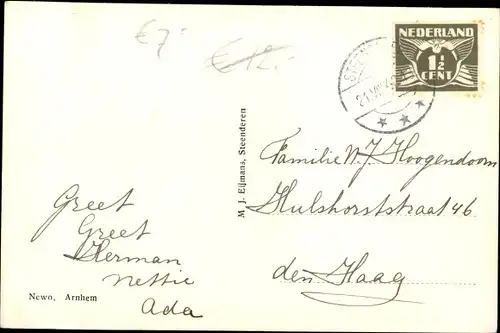 € 7,-
€ 12,-
NEDERLAND
1½
CENT
M. J. Eijmans, Steenderen
Familie W. J. Hoogendoorn
Hulshorststraat 46
den Haag
Greet
Greet
Herman
Nettie
Ada
Newo, Arnhem